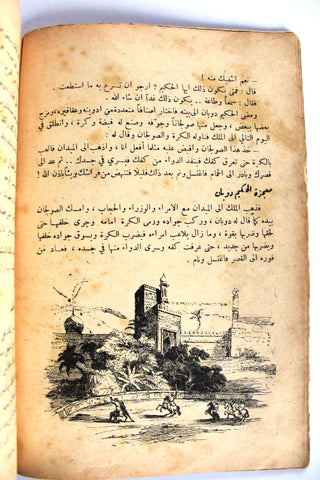 ـ نعم اشفيك منه !
قال : فمتى يكون ذلك ايها الحكيم ? ارجو ان تسرع به ما استطعت .
فقال : سمعاً وطاعة .. يكون ذلك غداً ان شاء الله .
ومضى الحكيم دوبان الى بيته فاختار اصنافاً متعددة من ادويته وعقاقيره ، ومزج
بعضها ببعض ، وجعل منها صولجاناً أجوف وصنع له قبضة وكرة ، وانطلق في
اليوم التالي الى الملك فناوله الكرة والصولجان وقال له :
ـ خذ هذا الصولجان واقبض عليه مثلما أفعل انا ، واذهب الى الميدان فالعب
بالكرة حتى تعرق كفك فينفذ الدواء من كفك الى جسدك .. ثم عد
الى الحمام فاغتسل ونم بعد ذلك قليلا فستنهض من فراشك بريئاً باذن الله !
معجزة الحكيم دوبان
فذهب الملك الى الميدان مع الامراء والوزراء والحجاب ، وامسك الصولجان
بيده كما قال له دوبان ، وركب جواده ورمى الكرة امامه وجرى خلفها حتى
لحقها وضربها بقوة ، وما زال يلاعب امراءه فيضرب الكرة ويسوق جواده خلفها
ويضربها من جديد ، حتى عرقت كفه وسرى الدواء منها في جسده ، فعـاد من
فوره الى القصر فاغتسل ونام .